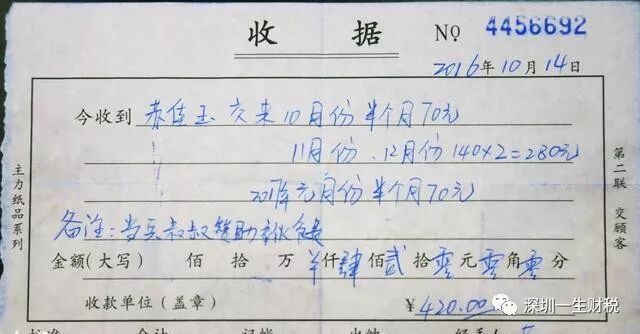 收 据 No 4456692
2016年10月14日
今收到 赤佳玉 交来10月份半个月70元
11月份、12月份 140×2=280元
元月份半个月70元
备注:当兵叔叔赞助
金额(大写) 佰 拾 万 ¥仟肆佰贰拾零元零角零分
收款单位(盖章) ¥420.00
主力纸品系列
第二联 交顾客
深圳一生财税